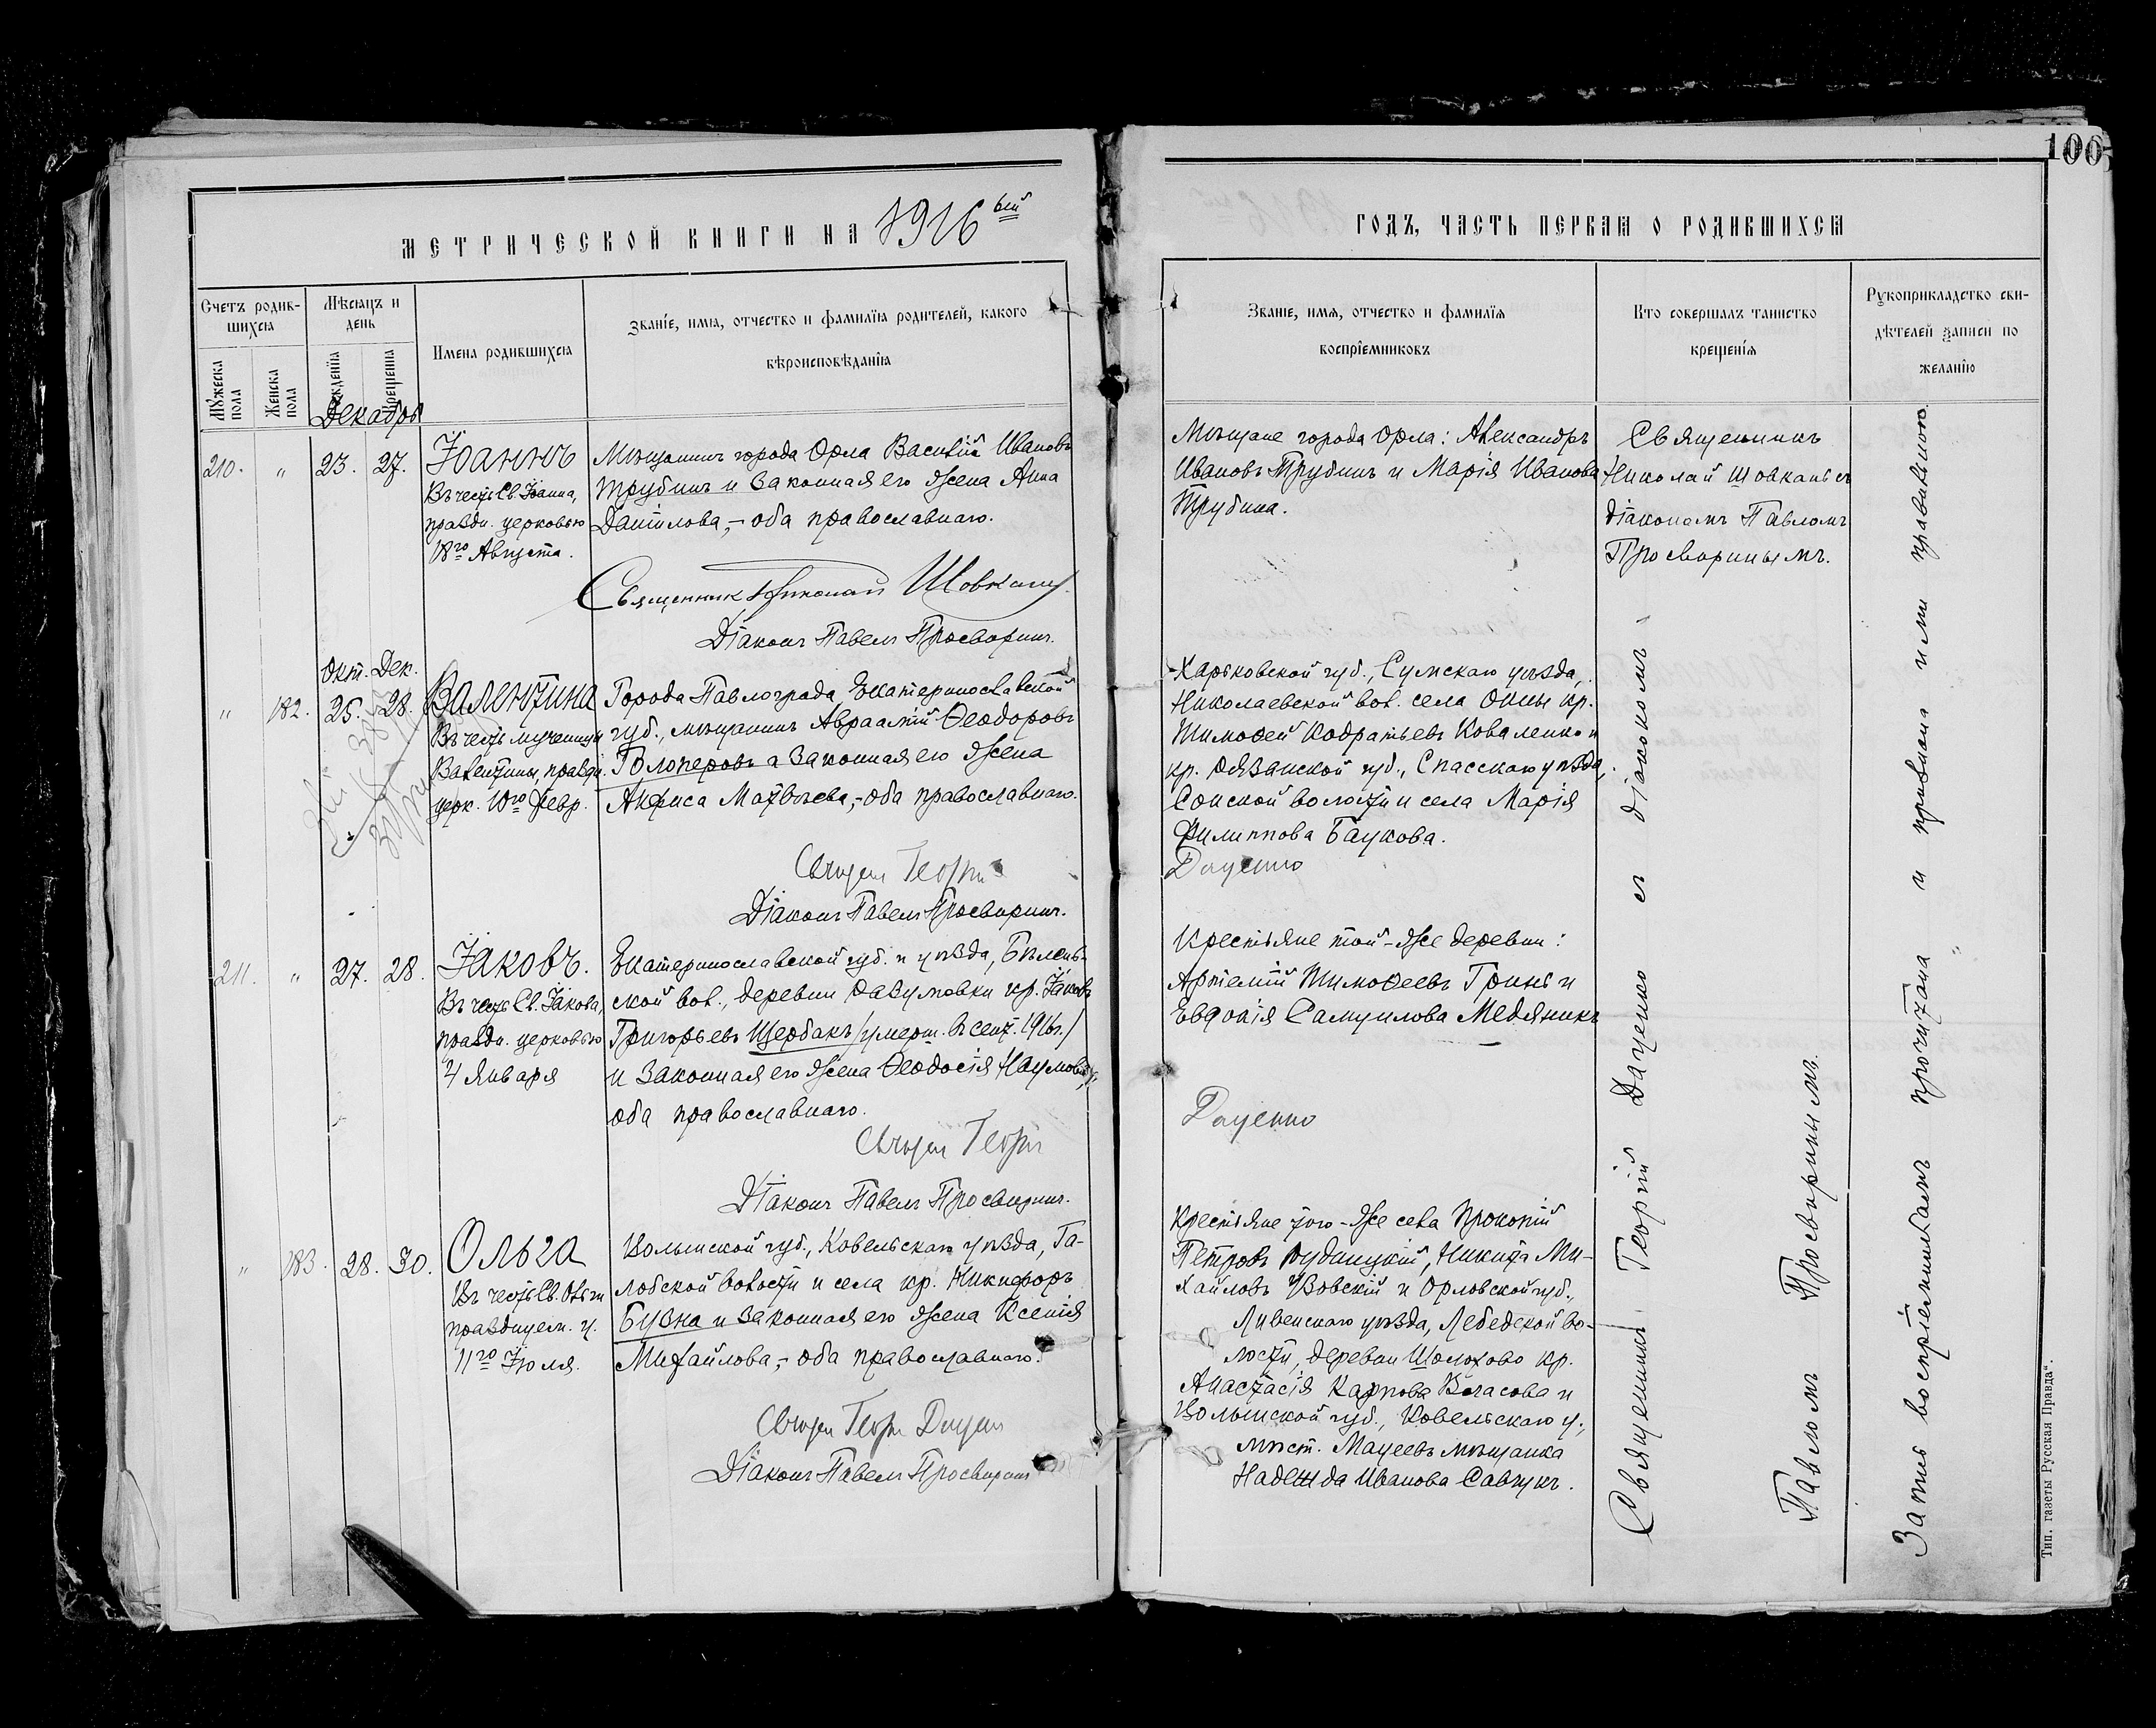 100
МЕТРИЧЕСКОЙ КНИГИ НА 1916ый
ГОДЪ, ЧАСТЬ ПЕРВАЯ О РОДИВШИХСЯ
Счетъ родив-
шихся
Мужеска пола
Женска пола
Мѣсяцъ и
день
рожденія
крещенія
Имена родившихся
Званіе, имя, отчество и фамилія родителей, какого
вѣроисповѣданія
Званіе, имя, отчество и фамилія
воспріемниковъ
Кто совершалъ таинство
крещенія
Рукоприкладство сви-
дѣтелей записи по
желанію
Декабрь
210. " 23. 27.
Іоаннъ
Въ честь Св. Іоанна,
праздн. церковью
18го Августа.
Мѣщанинъ города Орла Василій Ивановъ
Трубинъ и законная его жена Анна
Даніилова,- оба православнаго.
Священник Николай Шовкань
Діаконъ Павелъ Просворинъ.
Мѣщане города Орла: Александръ
Ивановъ Трубинъ и Марія Иванова
Трубина.
Священникъ
Николай Шовкань съ
діакономъ Павломъ
Просворинымъ.
Окт. Дек.
" 182. 25. 28.
Валентина
Въ честь мученицы
Валентины, праздн.
церк. 10го Февр.
Города Павлограда Екатеринославской
губ., мѣщанинъ Авраамій Ѳеодоровъ
Голоперовъ а законная его жена
Анфиса Матвѣева,- оба православнаго.
Діаконъ Павелъ Просворинъ.
Харьковской губ., Сумскаго уѣзда,
Николаевской вол. села кр.
Тимоѳей Кодратьевъ Коваленко и
кр. Рязанской губ., Спасскаго уѣзда,
волости и села Марія
Филиппова Баукова.
Даценко
211. " 27. 28.
Іаковъ.
Въ честь Св. Іакова,
праздн. церковью
4 Января
Екатеринославской губ. и уѣзда, Бѣлень-
ской вол., деревни Разумовки кр. Іаковъ
Григорьевъ Щербакъ /умерш. въ сент. 1916г./
и законная его жена Ѳеодосія Наумова,-
оба православнаго.
Діаконъ Павелъ Просворинъ.
Крестьяне той-же деревни:
Артемій Тимоѳеевъ Гринь и
Евдокія Самуилова Медяникъ
Даценко
" 183. 28. 30.
Ольга
Въ честь Св. Ольги
празднуем. ц.
11го Іюля.
Волынской губ., Ковельскаго уѣзда, Га-
лобской волости и села кр. Никифоръ
Бузка и законная его жена Ксенія
Михайлова,- оба православнаго.
Діаконъ Павелъ Просворинъ
Крестьяне того-же села Прокопій
Петровъ Рудницкій, Никита Ми-
хайловъ и Орловской губ.,
Ливенскаго уѣзда, Лебедской во-
лости, деревни Шолохово кр.
Анастасія Карпова Власова и
Волынской губ., Ковельскаго у.,
мѣст. Мацеевъ мѣщанка
Надежда Иванова Савчукъ.
Священникъ Георгій Даценко съ діакономъ
Павломъ Просворинымъ.
Запись воспріемникамъ прочитана и признана ими правильною.
Тип. газеты Русская Правда".